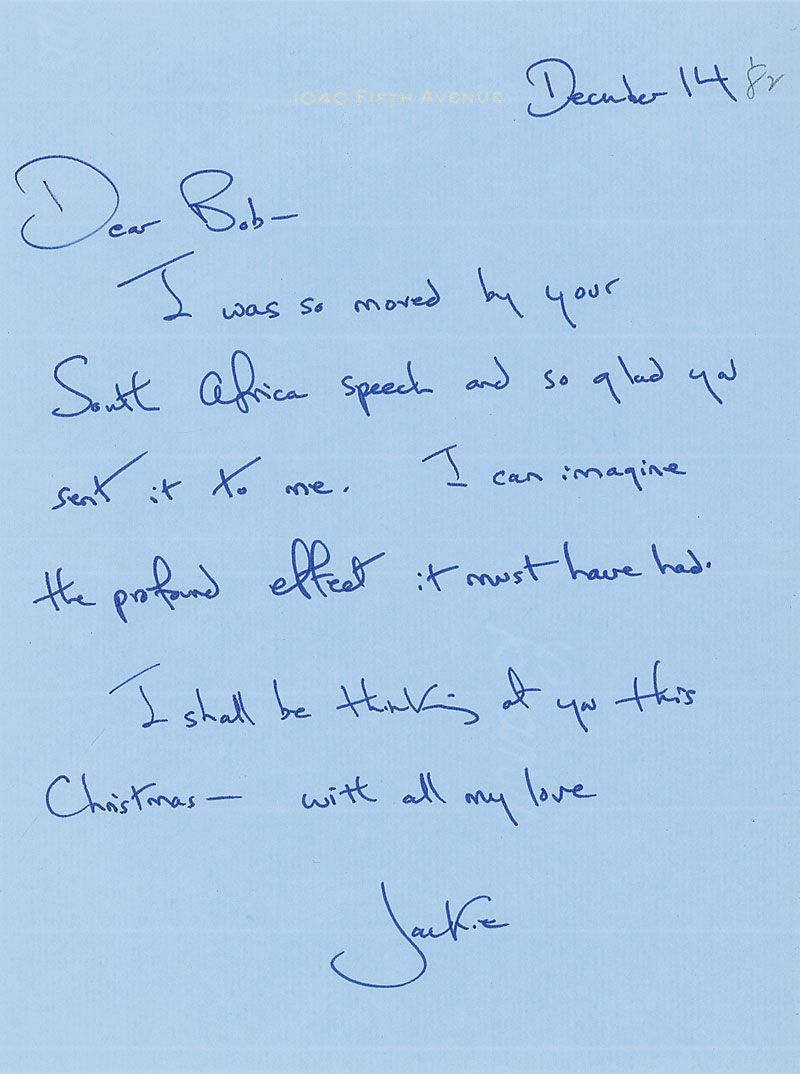 1040 FIFTH AVENUE
December 14 '82
Dear Bob—
I was so moved by your
South Africa speech and so glad you
sent it to me. I can imagine
the profound effect it must have had.
I shall be thinking of you this
Christmas— with all my love
Jackie